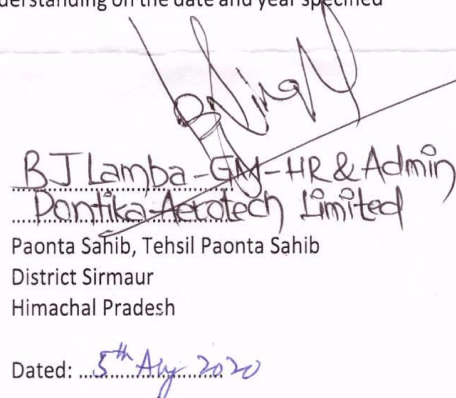 derstanding on the date and year specified
B J Lamba-GM-HR & Admin
Pontika Aerotech Limited
Paonta Sahib, Tehsil Paonta Sahib
District Sirmaur
Himachal Pradesh
Dated: 5th Aug 2020